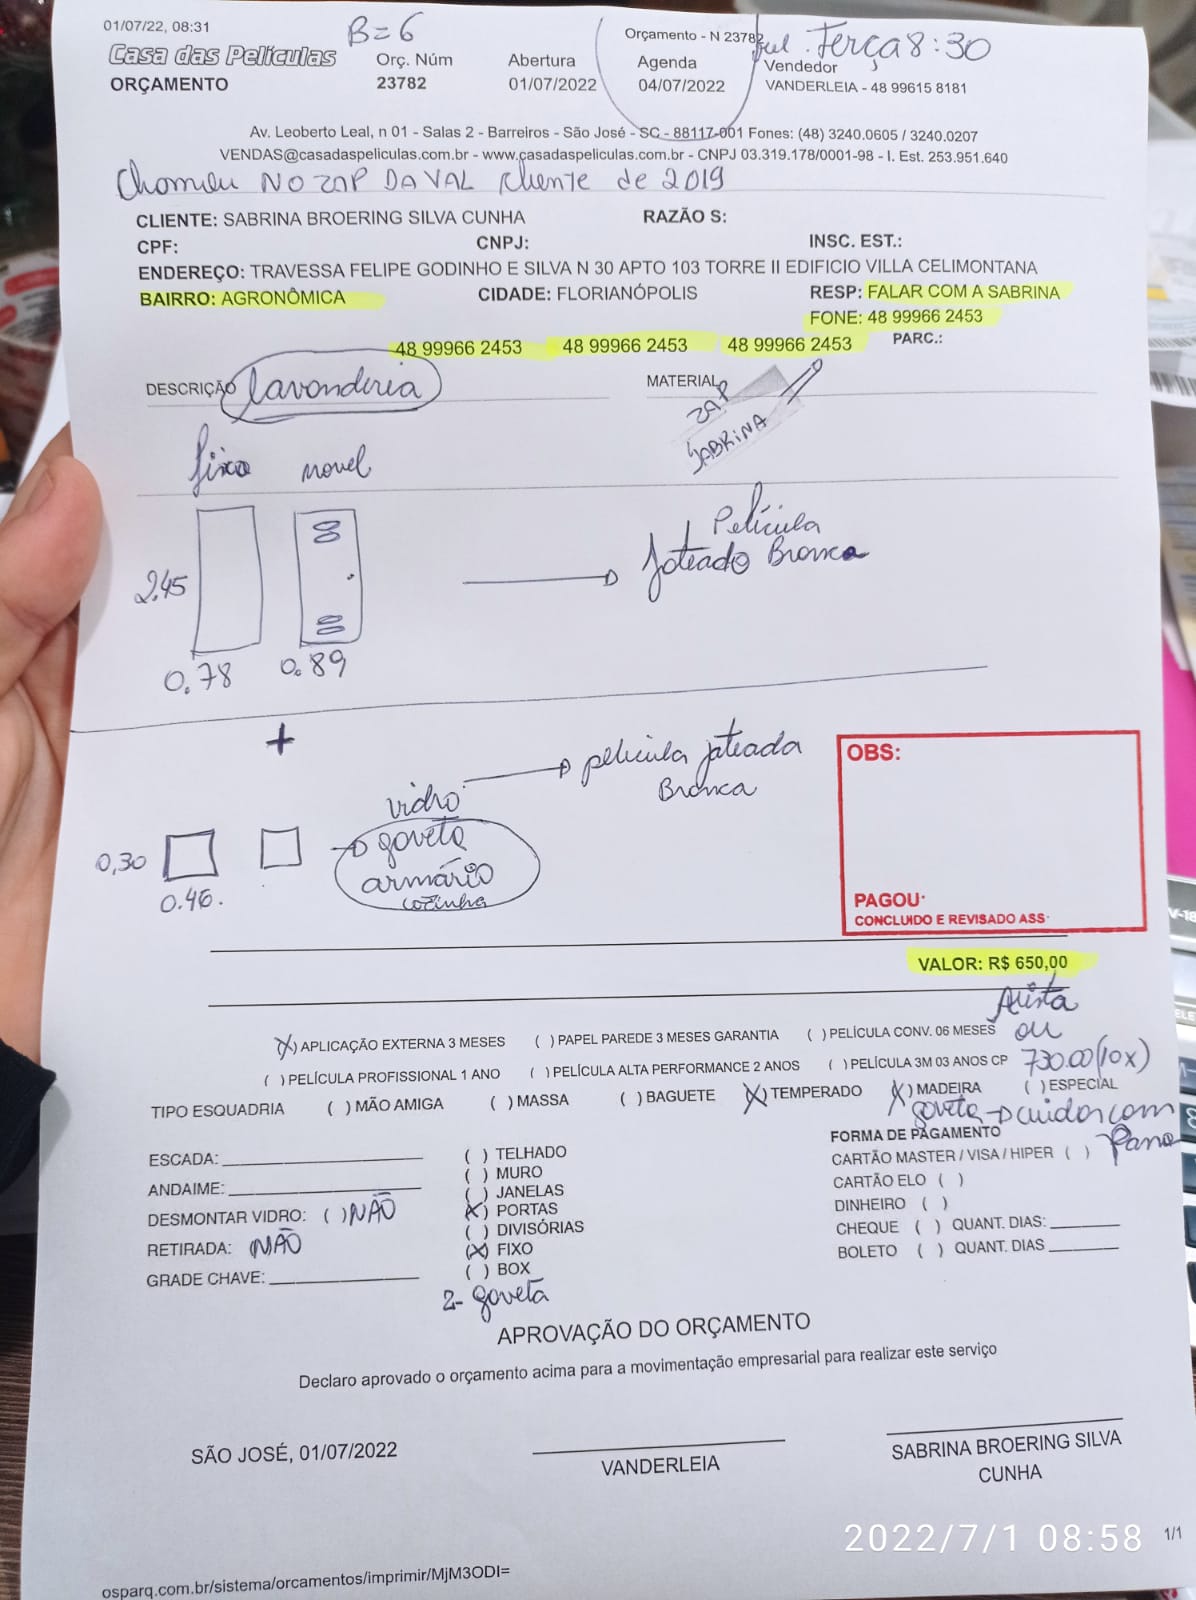 01/07/22, 08:31
B=6
Orçamento - N 23782
Terça 8:30
Casa das Películas
Orç. Núm
Abertura
Agenda
Vendedor
ORÇAMENTO
23782
01/07/2022
04/07/2022
VANDERLEIA - 48 99615 8181
Av. Leoberto Leal, n 01 - Salas 2 - Barreiros - São José - SC - 88117-001 Fones: (48) 3240.0605 / 3240.0207
VENDAS@casadaspeliculas.com.br - www.casadaspeliculas.com.br - CNPJ 03.319.178/0001-98 - I. Est. 253.951.640
Chamou NO ZAP DA VAL Cliente de 2019
CLIENTE: SABRINA BROERING SILVA CUNHA
RAZÃO S:
CPF:
CNPJ:
INSC. EST.:
ENDEREÇO: TRAVESSA FELIPE GODINHO E SILVA N 30 APTO 103 TORRE II EDIFICIO VILLA CELIMONTANA
BAIRRO: AGRONÔMICA
CIDADE: FLORIANÓPOLIS
RESP: FALAR COM A SABRINA
FONE: 48 99966 2453
48 99966 2453
48 99966 2453
48 99966 2453
PARC.:
DESCRIÇÃO
lavanderia
MATERIAL
ZAP
SABRINA
fixo
movel
Película
Jateado Branca
2.45
0.78
0.89
+
película jateada
Branca
vidro
gaveta
armário
cozinha
0,30
0.46.
OBS:
PAGOU:
CONCLUIDO E REVISADO ASS:
VALOR: R$ 650,00
Avista
ou
730.00 (10x)
(X) APLICAÇÃO EXTERNA 3 MESES
( ) PAPEL PAREDE 3 MESES GARANTIA
( ) PELÍCULA CONV. 06 MESES
( ) PELÍCULA PROFISSIONAL 1 ANO
( ) PELÍCULA ALTA PERFORMANCE 2 ANOS
( ) PELÍCULA 3M 03 ANOS CP
TIPO ESQUADRIA
( ) MÃO AMIGA
( ) MASSA
( ) BAGUETE
(X) TEMPERADO
(X) MADEIRA
( ) ESPECIAL
gaveta → cuidar com
Pano
FORMA DE PAGAMENTO
CARTÃO MASTER / VISA / HIPER ( )
CARTÃO ELO ( )
DINHEIRO ( )
CHEQUE ( ) QUANT. DIAS:
BOLETO ( ) QUANT. DIAS
ESCADA:
ANDAIME:
DESMONTAR VIDRO: ( ) NÃO
RETIRADA: NÃO
GRADE CHAVE:
( ) TELHADO
( ) MURO
( ) JANELAS
(X) PORTAS
( ) DIVISÓRIAS
(X) FIXO
( ) BOX
2- gaveta
APROVAÇÃO DO ORÇAMENTO
Declaro aprovado o orçamento acima para a movimentação empresarial para realizar este serviço
SÃO JOSÉ, 01/07/2022
VANDERLEIA
SABRINA BROERING SILVA
CUNHA
2022/7/1 08:58
1/1
osparq.com.br/sistema/orcamentos/imprimir/MjM3ODI=